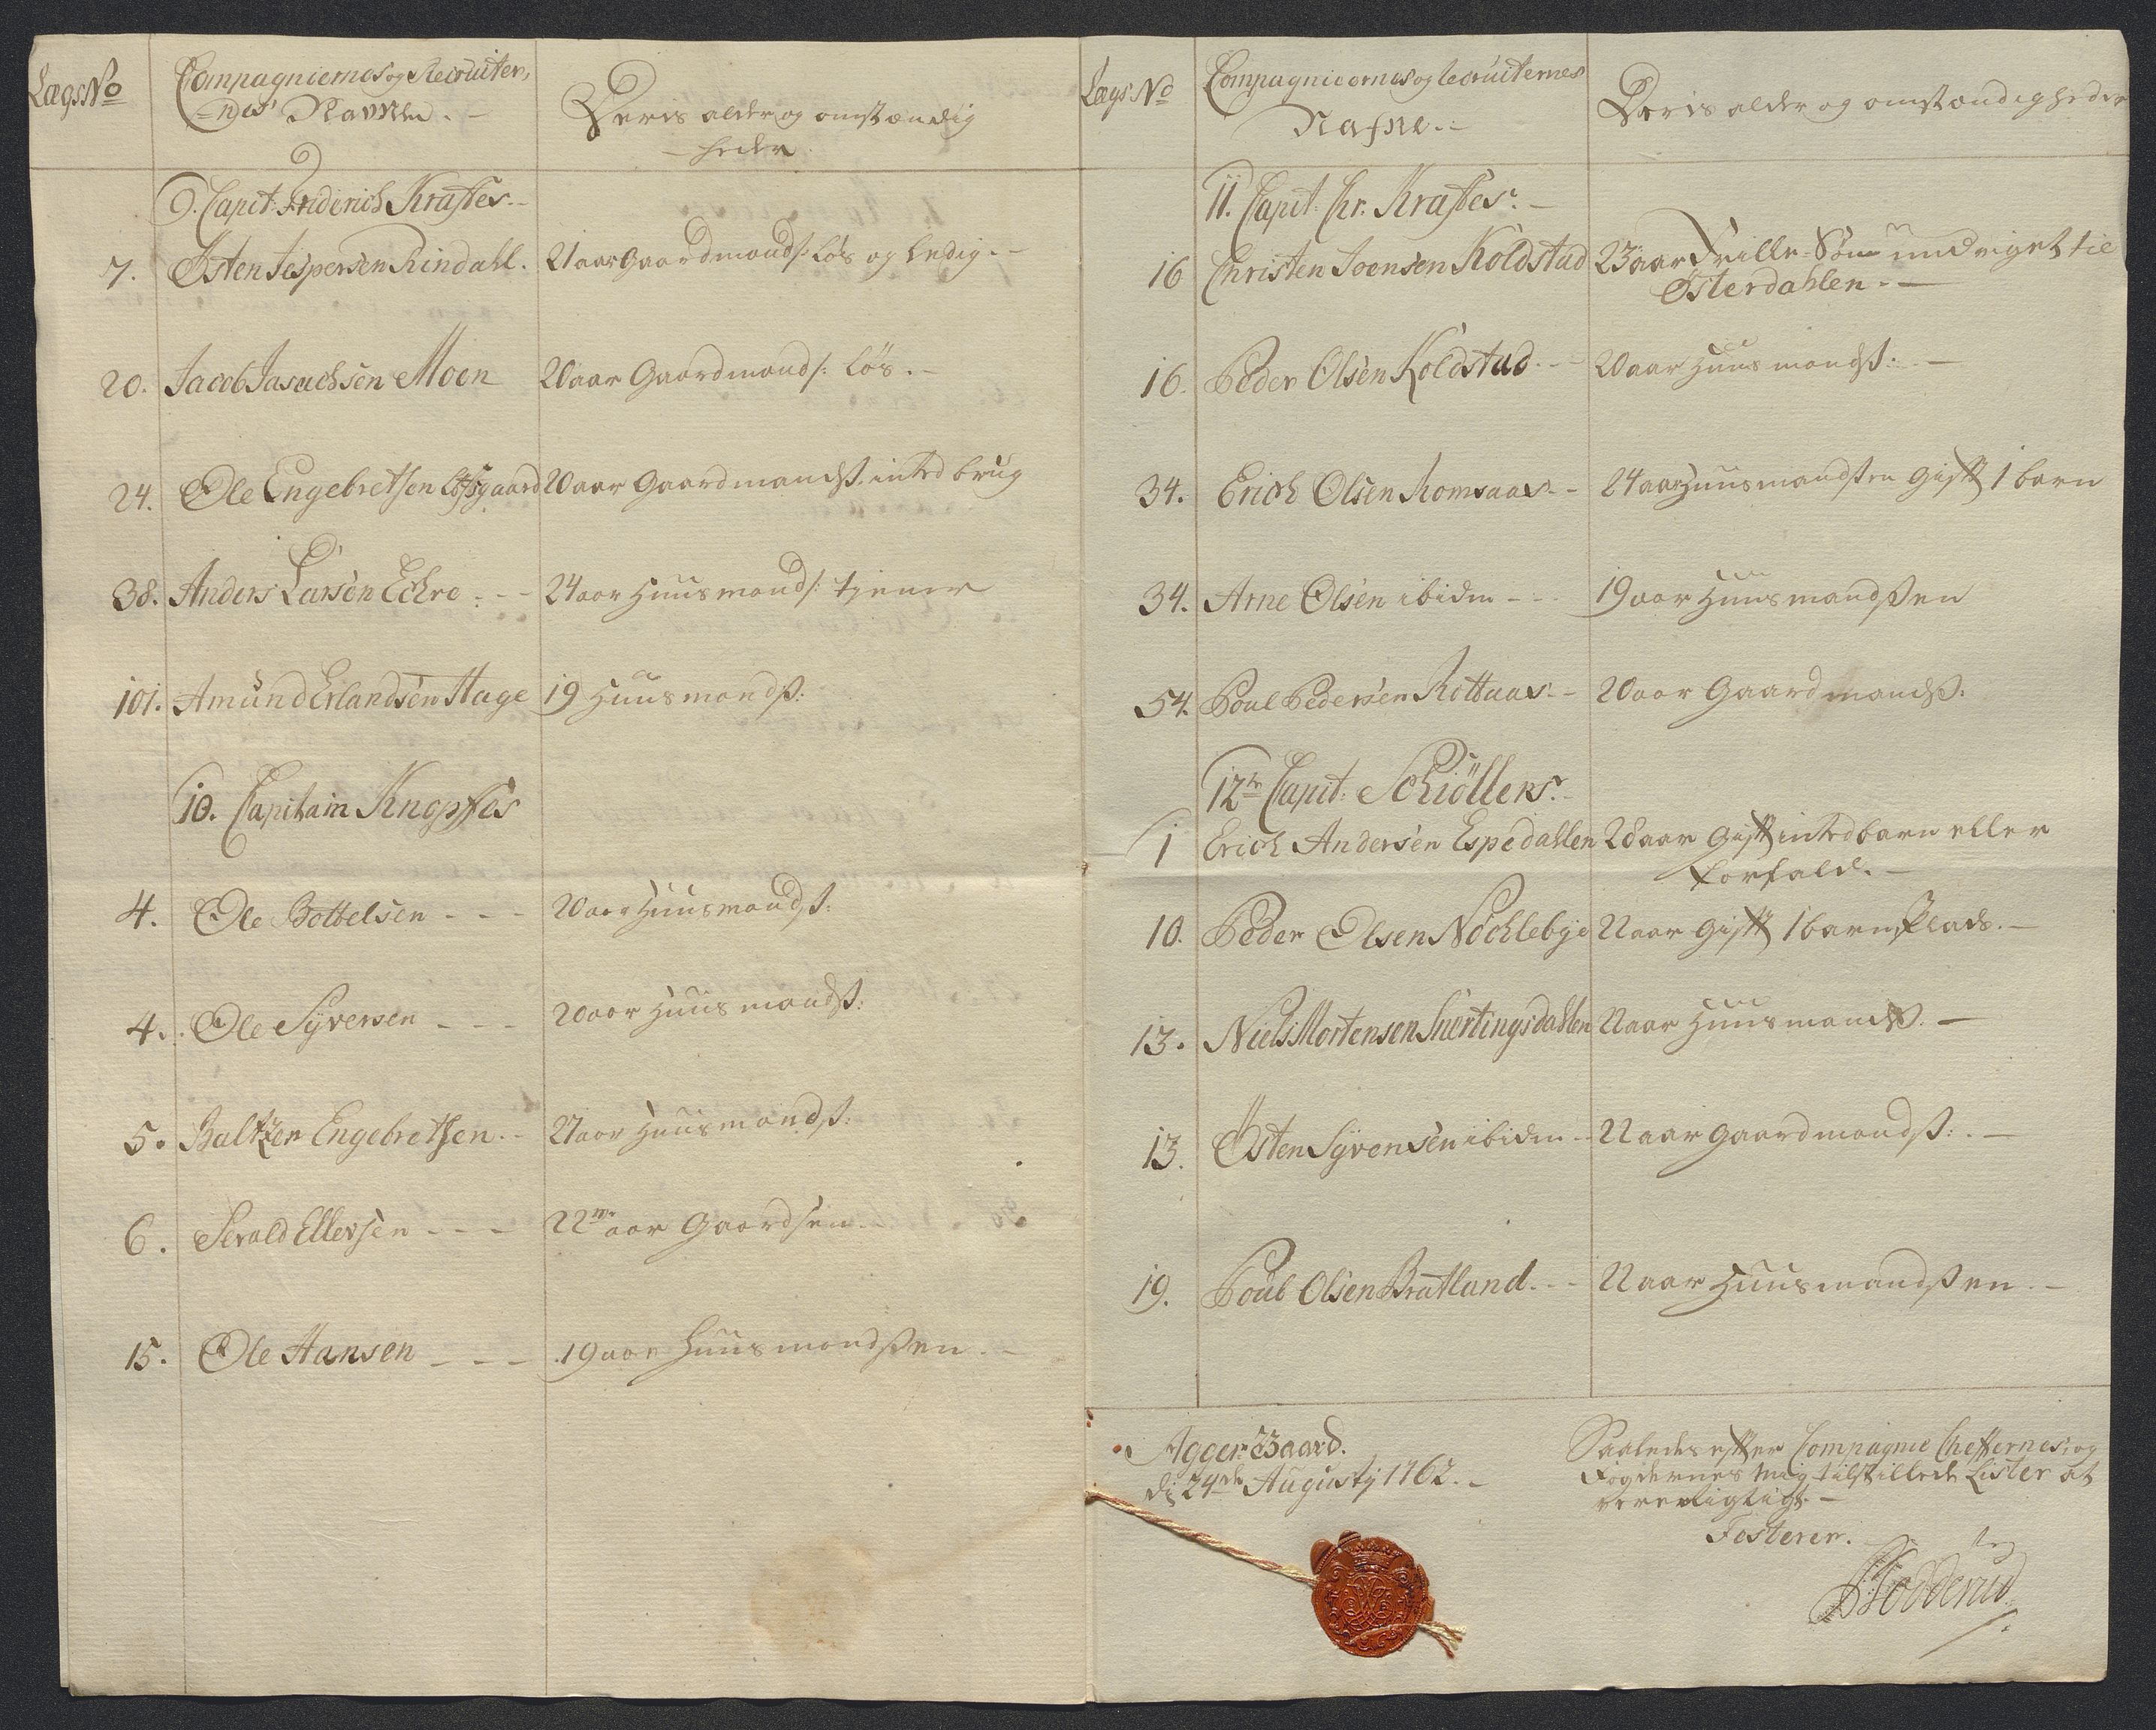 Lægs No
Compagniernes og Recruiter,
=nes Navne. -
Deris alder og omstændig
-heder
9. Capit: Friderich Kraftes. -
7. Østen Jespersen Rindahl. 21 aar Gaardmands: løs og ledig. -
20. Jacob Jsachsen Moen 20 aar Gaardmands: løs. -
24. Ole EngebretsenLøfsgaard 20 aar Gaardmandss. inted brug
38. Anders Larsen Echre - - 24 aar Huusmands: tjener
101. Amund Erlandsen Hage 19 Huusmandss:
10. Capitain Knopffes
4. Ole Bottelsen - - - 20 aar Huusmandss:
4. Ole Syversen - - - 20 aar Huusmandss:
5. Baltzer Engebretsen - - 21 aar Huusmandss:
6. Serald Ellevsen - - - 22 aar Gaardsen.
15. Ole Hansen - - - 19 aar Huusmandssen. -
Lægs No
Compagniernes og Recruiternes
Nafne. -
Deris alder og omstændigheder
11. Capit: Chr. Kraftes. -
16 Christen Joensen Koldstad 23 aar Frille-Søn undviget til
Østerdahlen. -
16. Peder Olsen Koldstad. - 20 aar Huusmandss: -
34. Erich Olsen Romsaas - - 24 aar Huusmandssen gift 1 barn
34. Arne Olsen ibidm - - 19 aar Huusmandssen
54. Poul Pedersen Kottaas - 20 aar Gaardmandss:
12te Capit: Schiöllers. -
1 Erich Andersen Espedahlen 28 aar Gift inted barn eller
forfald. -
10. Peder Olsen Nöchlebye 22 aar Gift 1 barn Plads. -
13. Niels Mortensen Snertingsdahlen 22 aar Huusmandss. -
13. Østen Syversen ibidm - 22 aar Gaardmandss: -
19. Poul Olsen Bratland. - - 22 aar Huusmandssen -
Agger Baard.
dj 24de Augustj 1762. -
Saaledes efter Compagnie Cheffernes og
Fogdernes mig tilstillede Lister at
være rigtigt. -
Testerer.
Hodderud